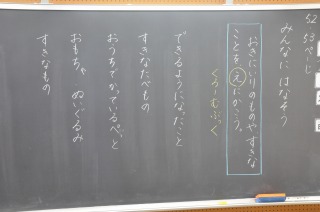 52
53 ページ
みんなに はなそう
おきにいりのものやすきな
ことを えにかこう。
くろーむぶっく
できるようになったこと
すきなたべもの
おうちでかっているぺっと
おもちゃ ぬいぐるみ
すきなもの